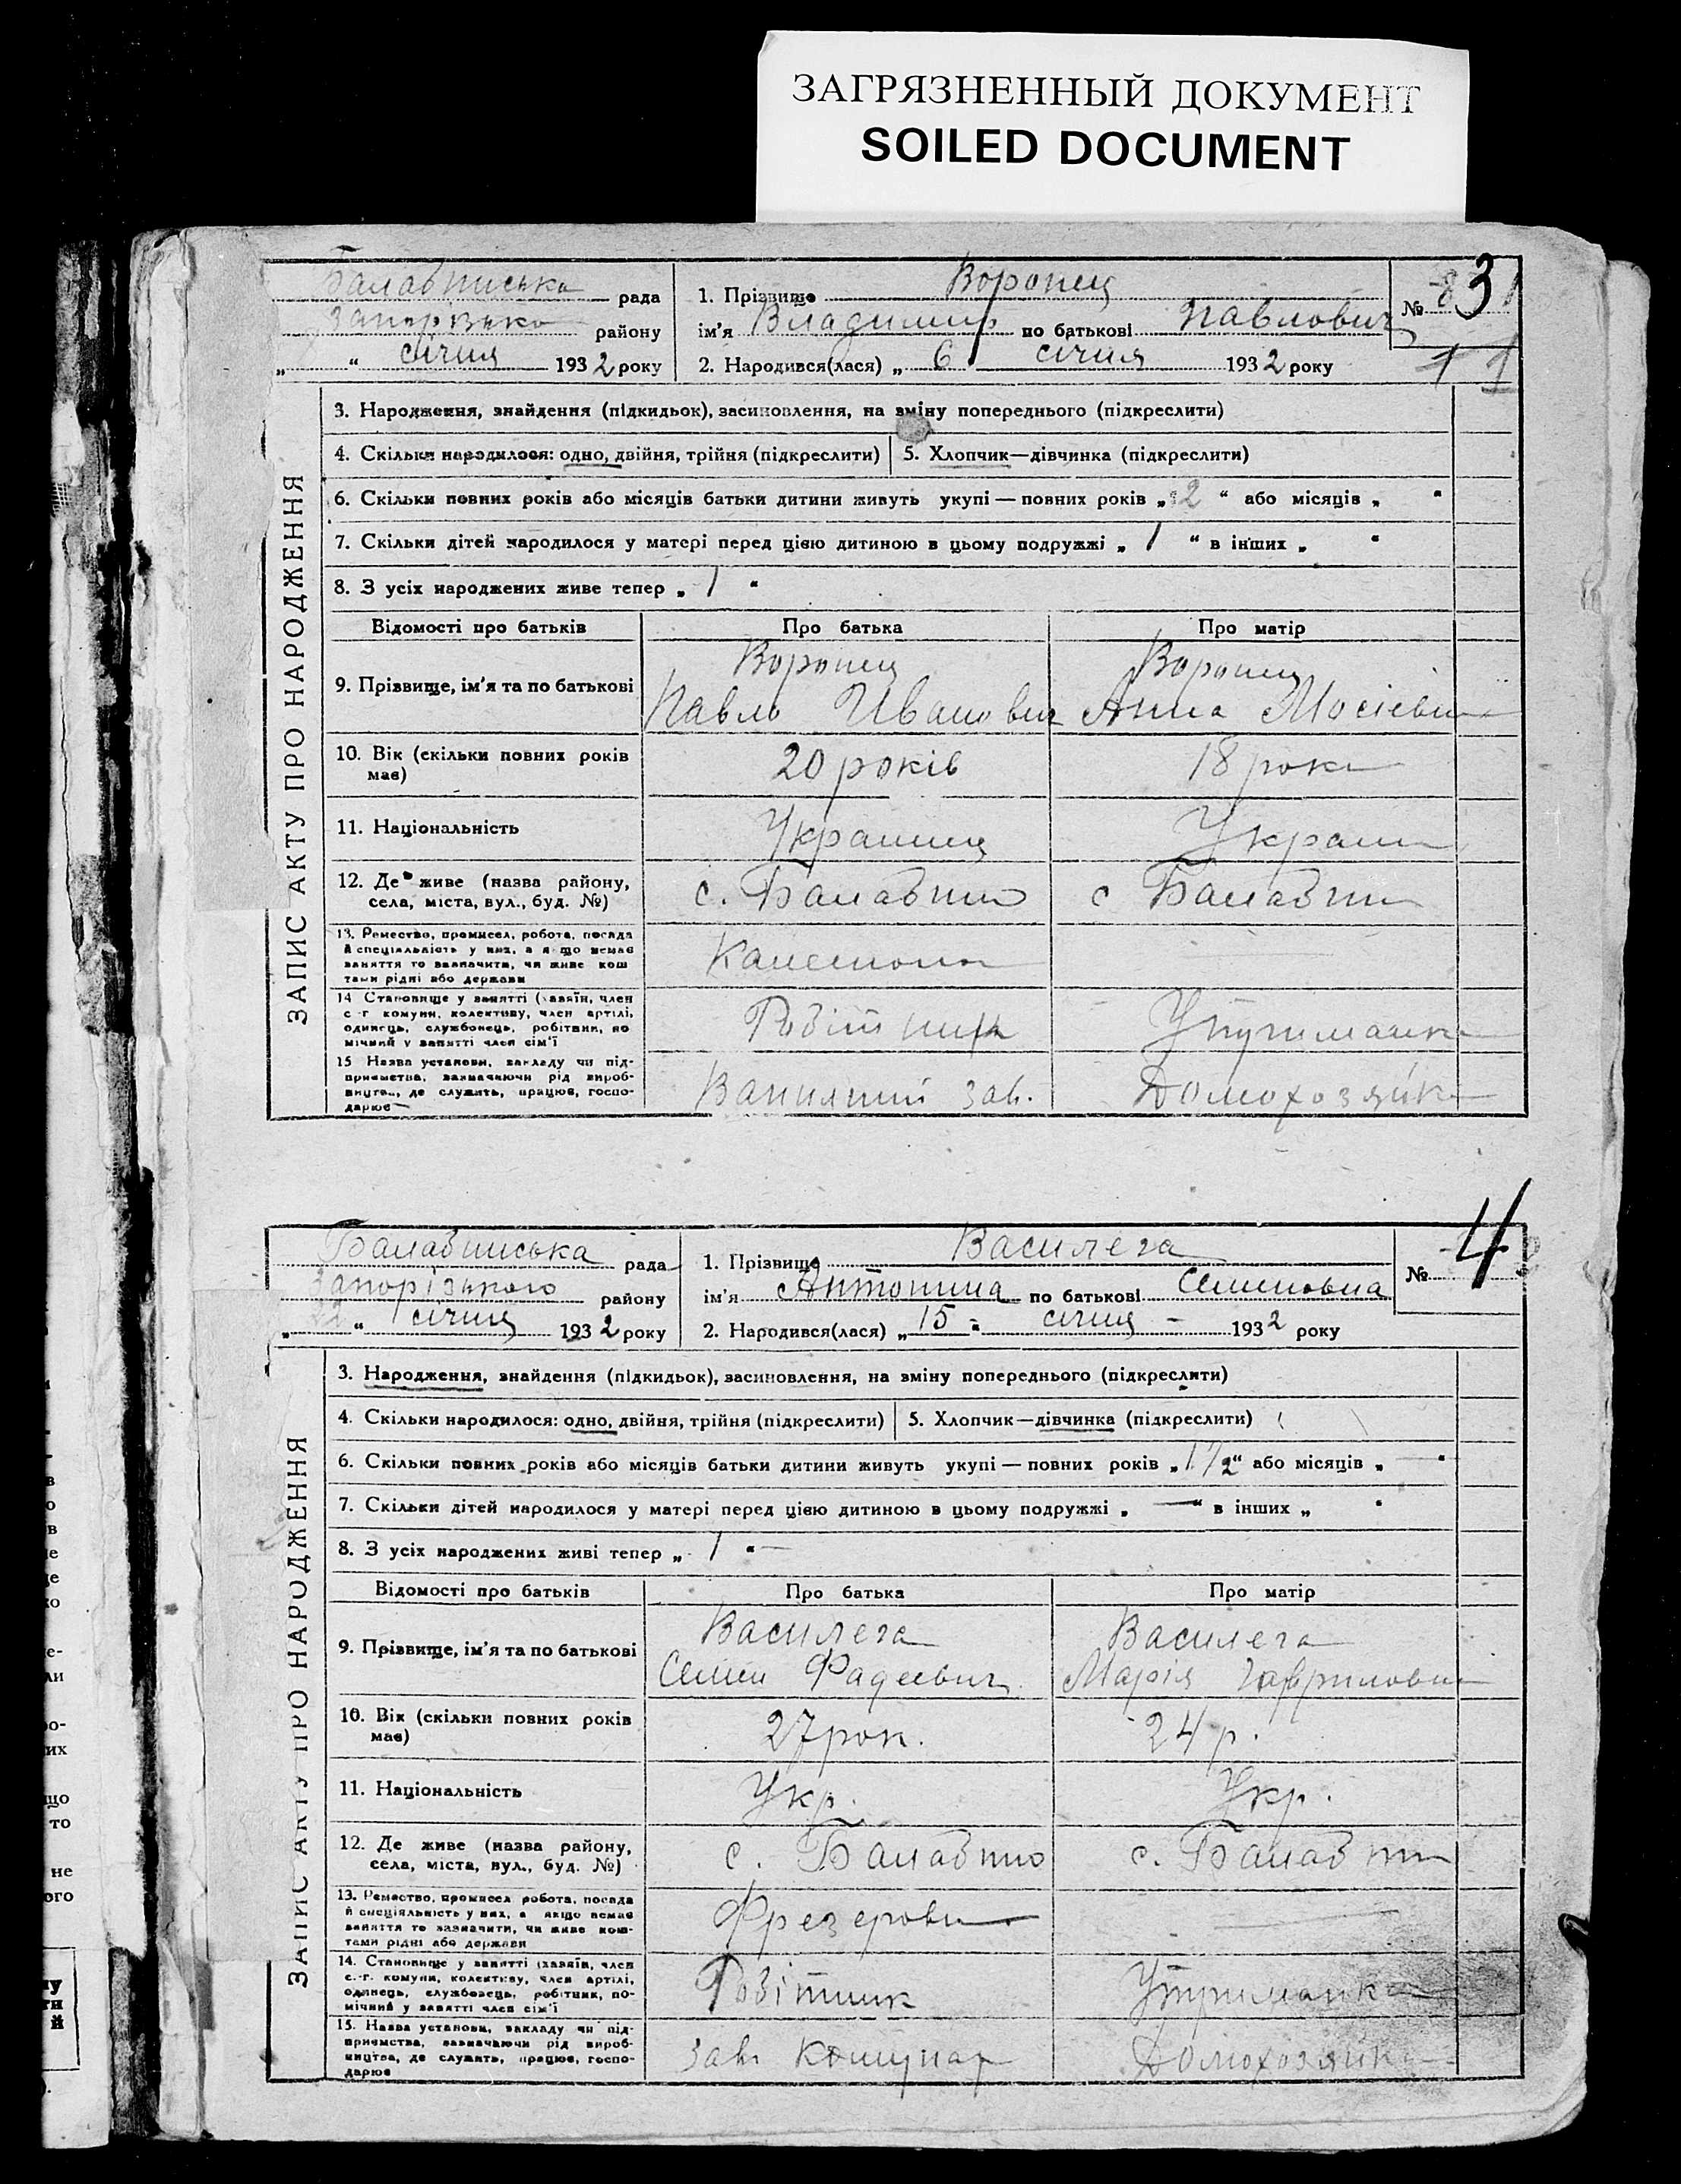 ЗАГРЯЗНЕННЫЙ ДОКУМЕНТ
SOILED DOCUMENT
Балабинська рада
району
„ “ січня 1932 року
1. Прізвище Воронец
ім'я Владимир по батькові Павлович
2. Народився(лася) „ 6 січня 1932 року
№ 3
3. Народження, знайдення (підкидьок), засиновлення, на зміну попереднього (підкреслити)
4. Скільки народилося: одно, двійня, трійня (підкреслити)
5. Хлопчик—дівчинка (підкреслити)
6. Скільки повних років або місяців батьки дитини живуть укупі — повних років „ 2 “ або місяців „ “
7. Скільки дітей народилося у матері перед цією дитиною в цьому подружжі „ 1 “ в інших „ “
8. З усіх народжених живе тепер „ 1 “
ЗАПИС АКТУ ПРО НАРОДЖЕННЯ
Відомості про батьків Про батька Про матір
9. Прізвище, ім'я та по батькові
Воронец Воронец
Павло Иванович Анна
10. Вік (скільки повних років має)
20 років 18 роки
11. Національність
Украинец
12. Де живе (назва району, села, міста, вул., буд. №)
с. Балабино с Балабин
13. Ремество, промисел, робота, посада
й спеціяльність у них, а якщо немає
заняття то зазначити, чи живе кош
тами рідні або держави
14 Становище у занятті (хазяїн, член
с.-г комуни, колективу, член артілі,
одинець, службовець, робітник, по
мічний у занятті член сім'ї
Робітник Утриманка
15 Назва установи, закладу чи під-
приємства, зазначаючи рід вироб-
ництва, де служить, працює, госпо-
дарює
зав. Домохозяйка
Балабинська рада
Запорізького району
„ “ січня 1932 року
1. Прізвище Василега
ім'я Антонина по батькові Семеновна
2. Народився(лася) „ 15 “ січня 1932 року
№ 4
3. Народження, знайдення (підкидьок), засиновлення, на зміну попереднього (підкреслити)
4. Скільки народилося: одно, двійня, трійня (підкреслити)
5. Хлопчик—дівчинка (підкреслити)
6. Скільки повних років або місяців батьки дитини живуть укупі — повних років „ 1 1/2 “ або місяців „ — “
7. Скільки дітей народилося у матері перед цією дитиною в цьому подружжі „ — “ в інших „ “
8. З усіх народжених живі тепер „ 1 “
ЗАПИС АКТУ ПРО НАРОДЖЕННЯ
Відомості про батьків Про батька Про матір
9. Прізвище, ім'я та по батькові
Василега Василега
Семен Фадеевич Марія Гавриловна
10. Вік (скільки повних років має)
27 рок. 24 р.
11. Національність
Укр. Укр.
12. Де живе (назва району, села, міста, вул., буд. №)
с. Балабино с. Балабин
13. Ремество, промисел робота, посада
й спеціяльність у них, а якщо немає
заняття то зазначити, чи живе кош-
тами рідні або держави
14. Становище у занятті (хазяїн, член
с.-г. комуни, колективу, член артілі,
одинець, службовець, робітник, по-
мічний у занятті член сім'ї
Робітник Утриманка
15. Назва установи, закладу чи під-
приємства, зазначаючи рід вироб-
ництва, де служить, працює, госпо-
дарює
Зав. Комунар Домохозяйка